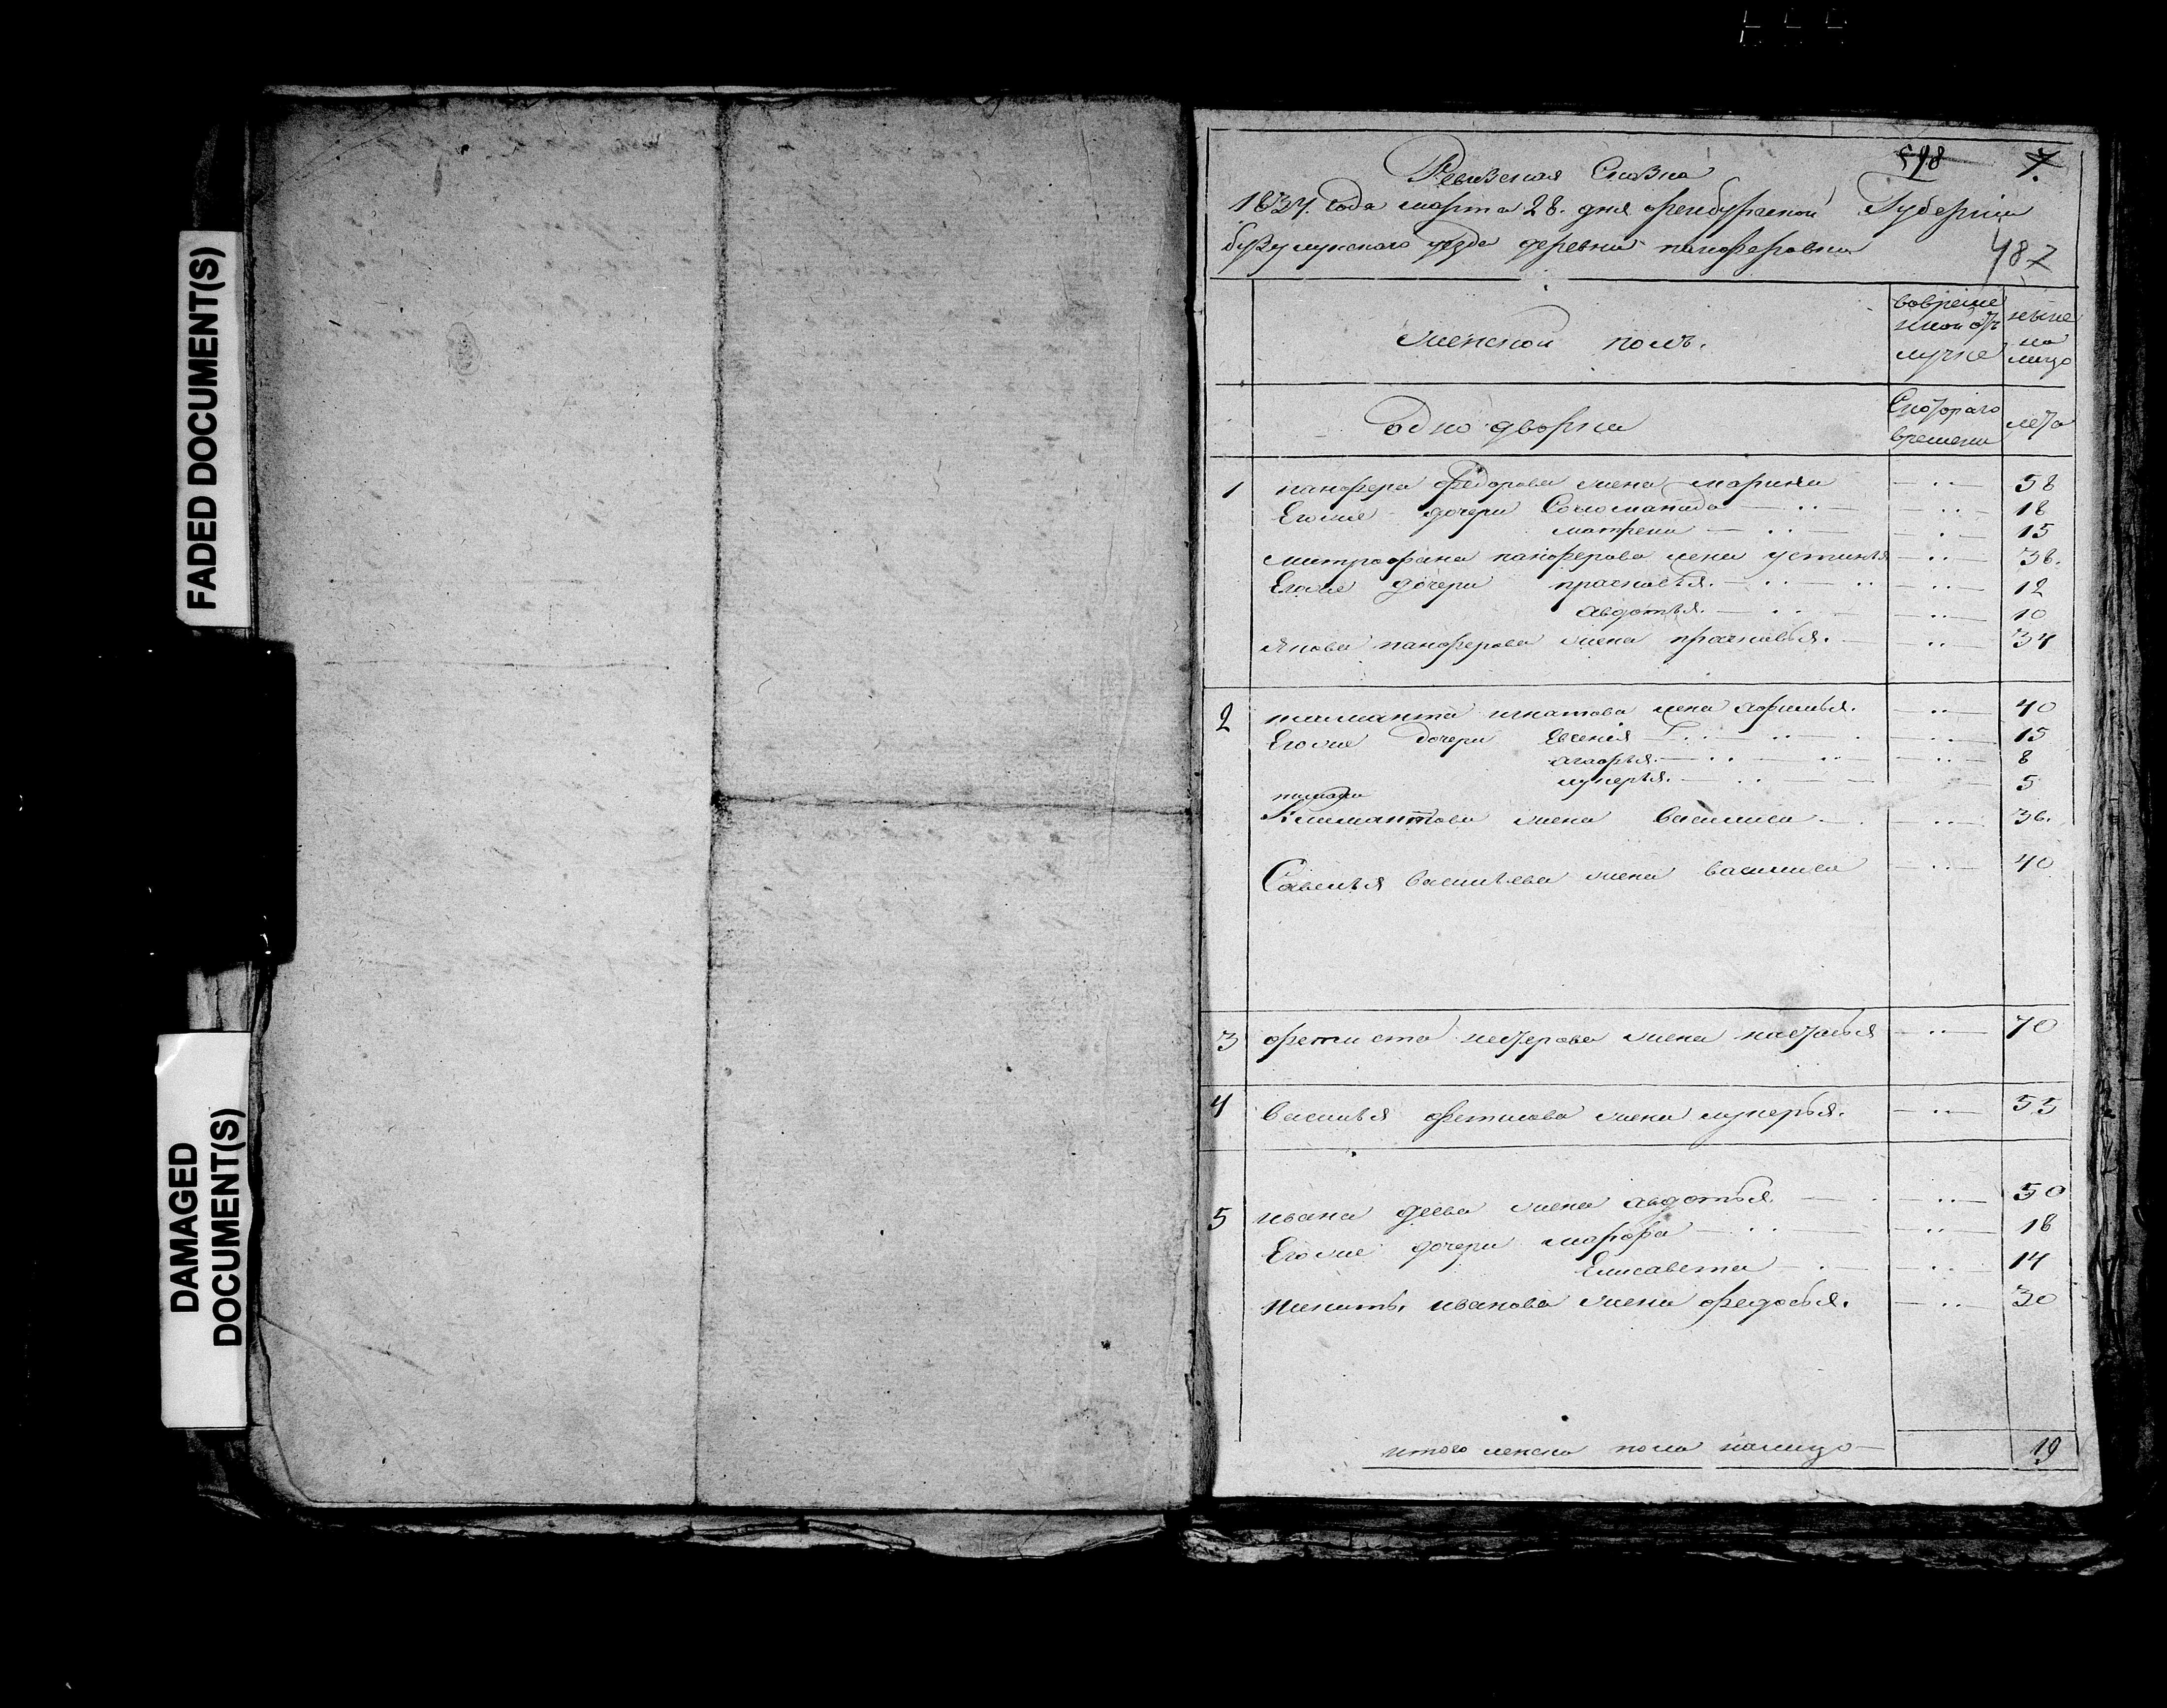 FADED DOCUMENT(S)
DAMAGED
DOCUMENT(S)
598 7.
Ревизская Сказка
1834. Года марта 28. дня оренбургской Губернiи
бузулукского уезда деревни панферовки
487
женской полъ.
вовреме
нной от
лучке
ныне
на
лицо
Однодворки
Скотораго
времени
лета
1 панфера Федорова жена марина 58
Егоже дочери Соломанида 18
матрена 15
митрофана панферова жена устинья 38.
Егоже дочери прасковья. 12
авдотья. 10
якова панферова жена прасковья. 34
2 игнатова жена афимья. 40
Егоже дочери Евгенiя 15
агафья. 8
лукерья. 5
жена василиса 36.
Савелья васильева жена василиса 40
3 фетиста жена наталья 70
4 василья фетисова жена лукерья. 55
5 ивана деева жена авдотья 50
Егоже дочери марфа 18
Елисавета 14
никиты иванова жена федосья. 30
итого женска пола налицо 19